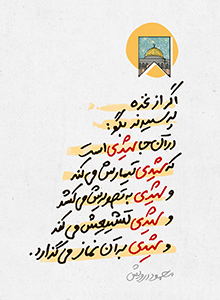 اگر از غزه
پرسیدند بگو:
در آن جا شهیدی است
که شهیدی تیمارش می‌کند
و شهیدی به تصویرش می‌کشد
و شهیدی تشییعش می‌کند
و شهیدی به آن نماز می‌گذارد.
محمود درویش